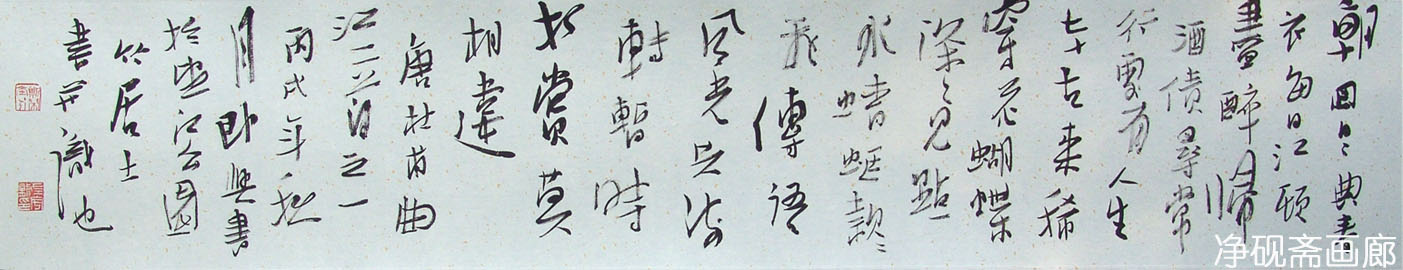 朝回日〻典春
衣每日江頭
盡醉歸
酒債尋常
行處有人生
七十古來稀
穿花蝴蝶
深〻見點
水蜻蜓款〻
飛傳語
風光共流
轉暫時
相賞莫
相違
唐杜甫曲
江二首之一
丙戌年秋
月即興書
於江公園
居士
書並識也
净砚斋画廊